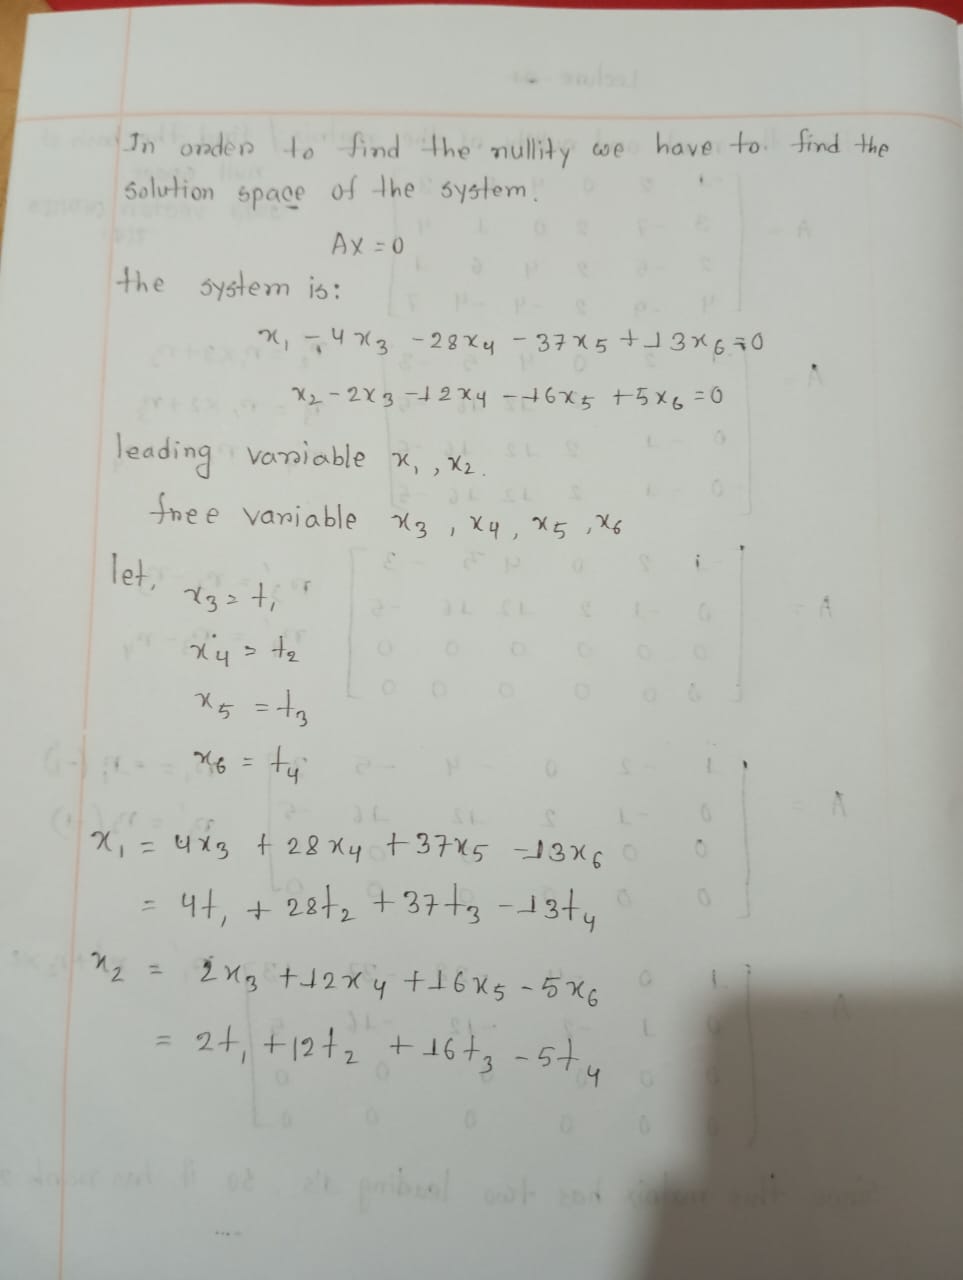 In order to find the nullity we have to find the
solution space of the system.
AX = 0
the system is:
x₁ - 4x₃ - 28x₄ - 37x₅ + 13x₆ = 0
x₂ - 2x₃ - 12x₄ - 16x₅ + 5x₆ = 0
leading variable x₁, x₂.
free variable x₃, x₄, x₅, x₆
let, x₃ = t₁
x₄ = t₂
x₅ = t₃
x₆ = t₄
x₁ = 4x₃ + 28x₄ + 37x₅ - 13x₆
= 4t₁ + 28t₂ + 37t₃ - 13t₄
x₂ = 2x₃ + 12x₄ + 16x₅ - 5x₆
= 2t₁ + 12t₂ + 16t₃ - 5t₄